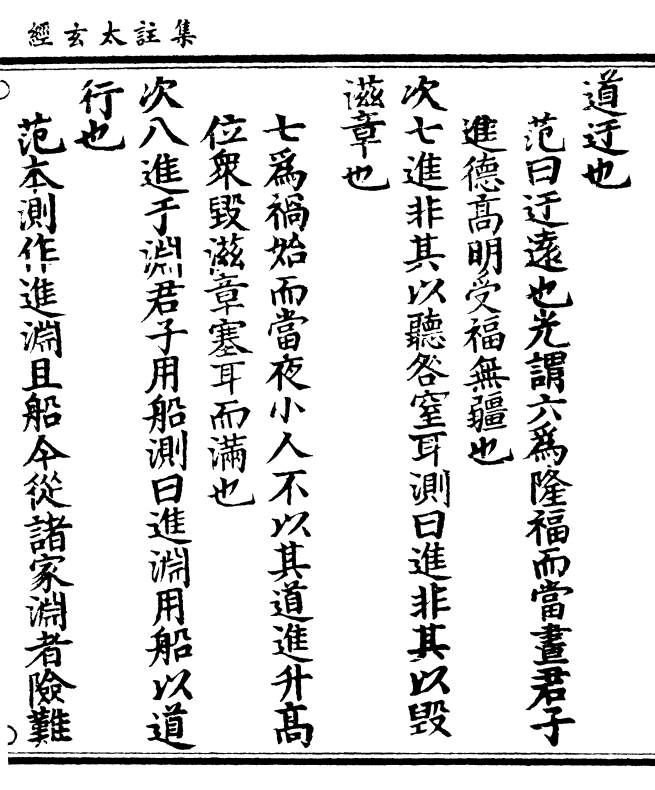 集註太玄經
道迂也
范曰迂遠也光謂六爲隆福而當晝君子
進德高明受福無疆也
次七進非其以聽咎窒耳測曰進非其以毀
滋章也
七爲禍始而當夜小人不以其道進升高
位衆毀滋章塞耳而滿也
次八進于淵君子用船測曰進淵用船以道
行也
范本測作進淵且船今從諸家淵者險難